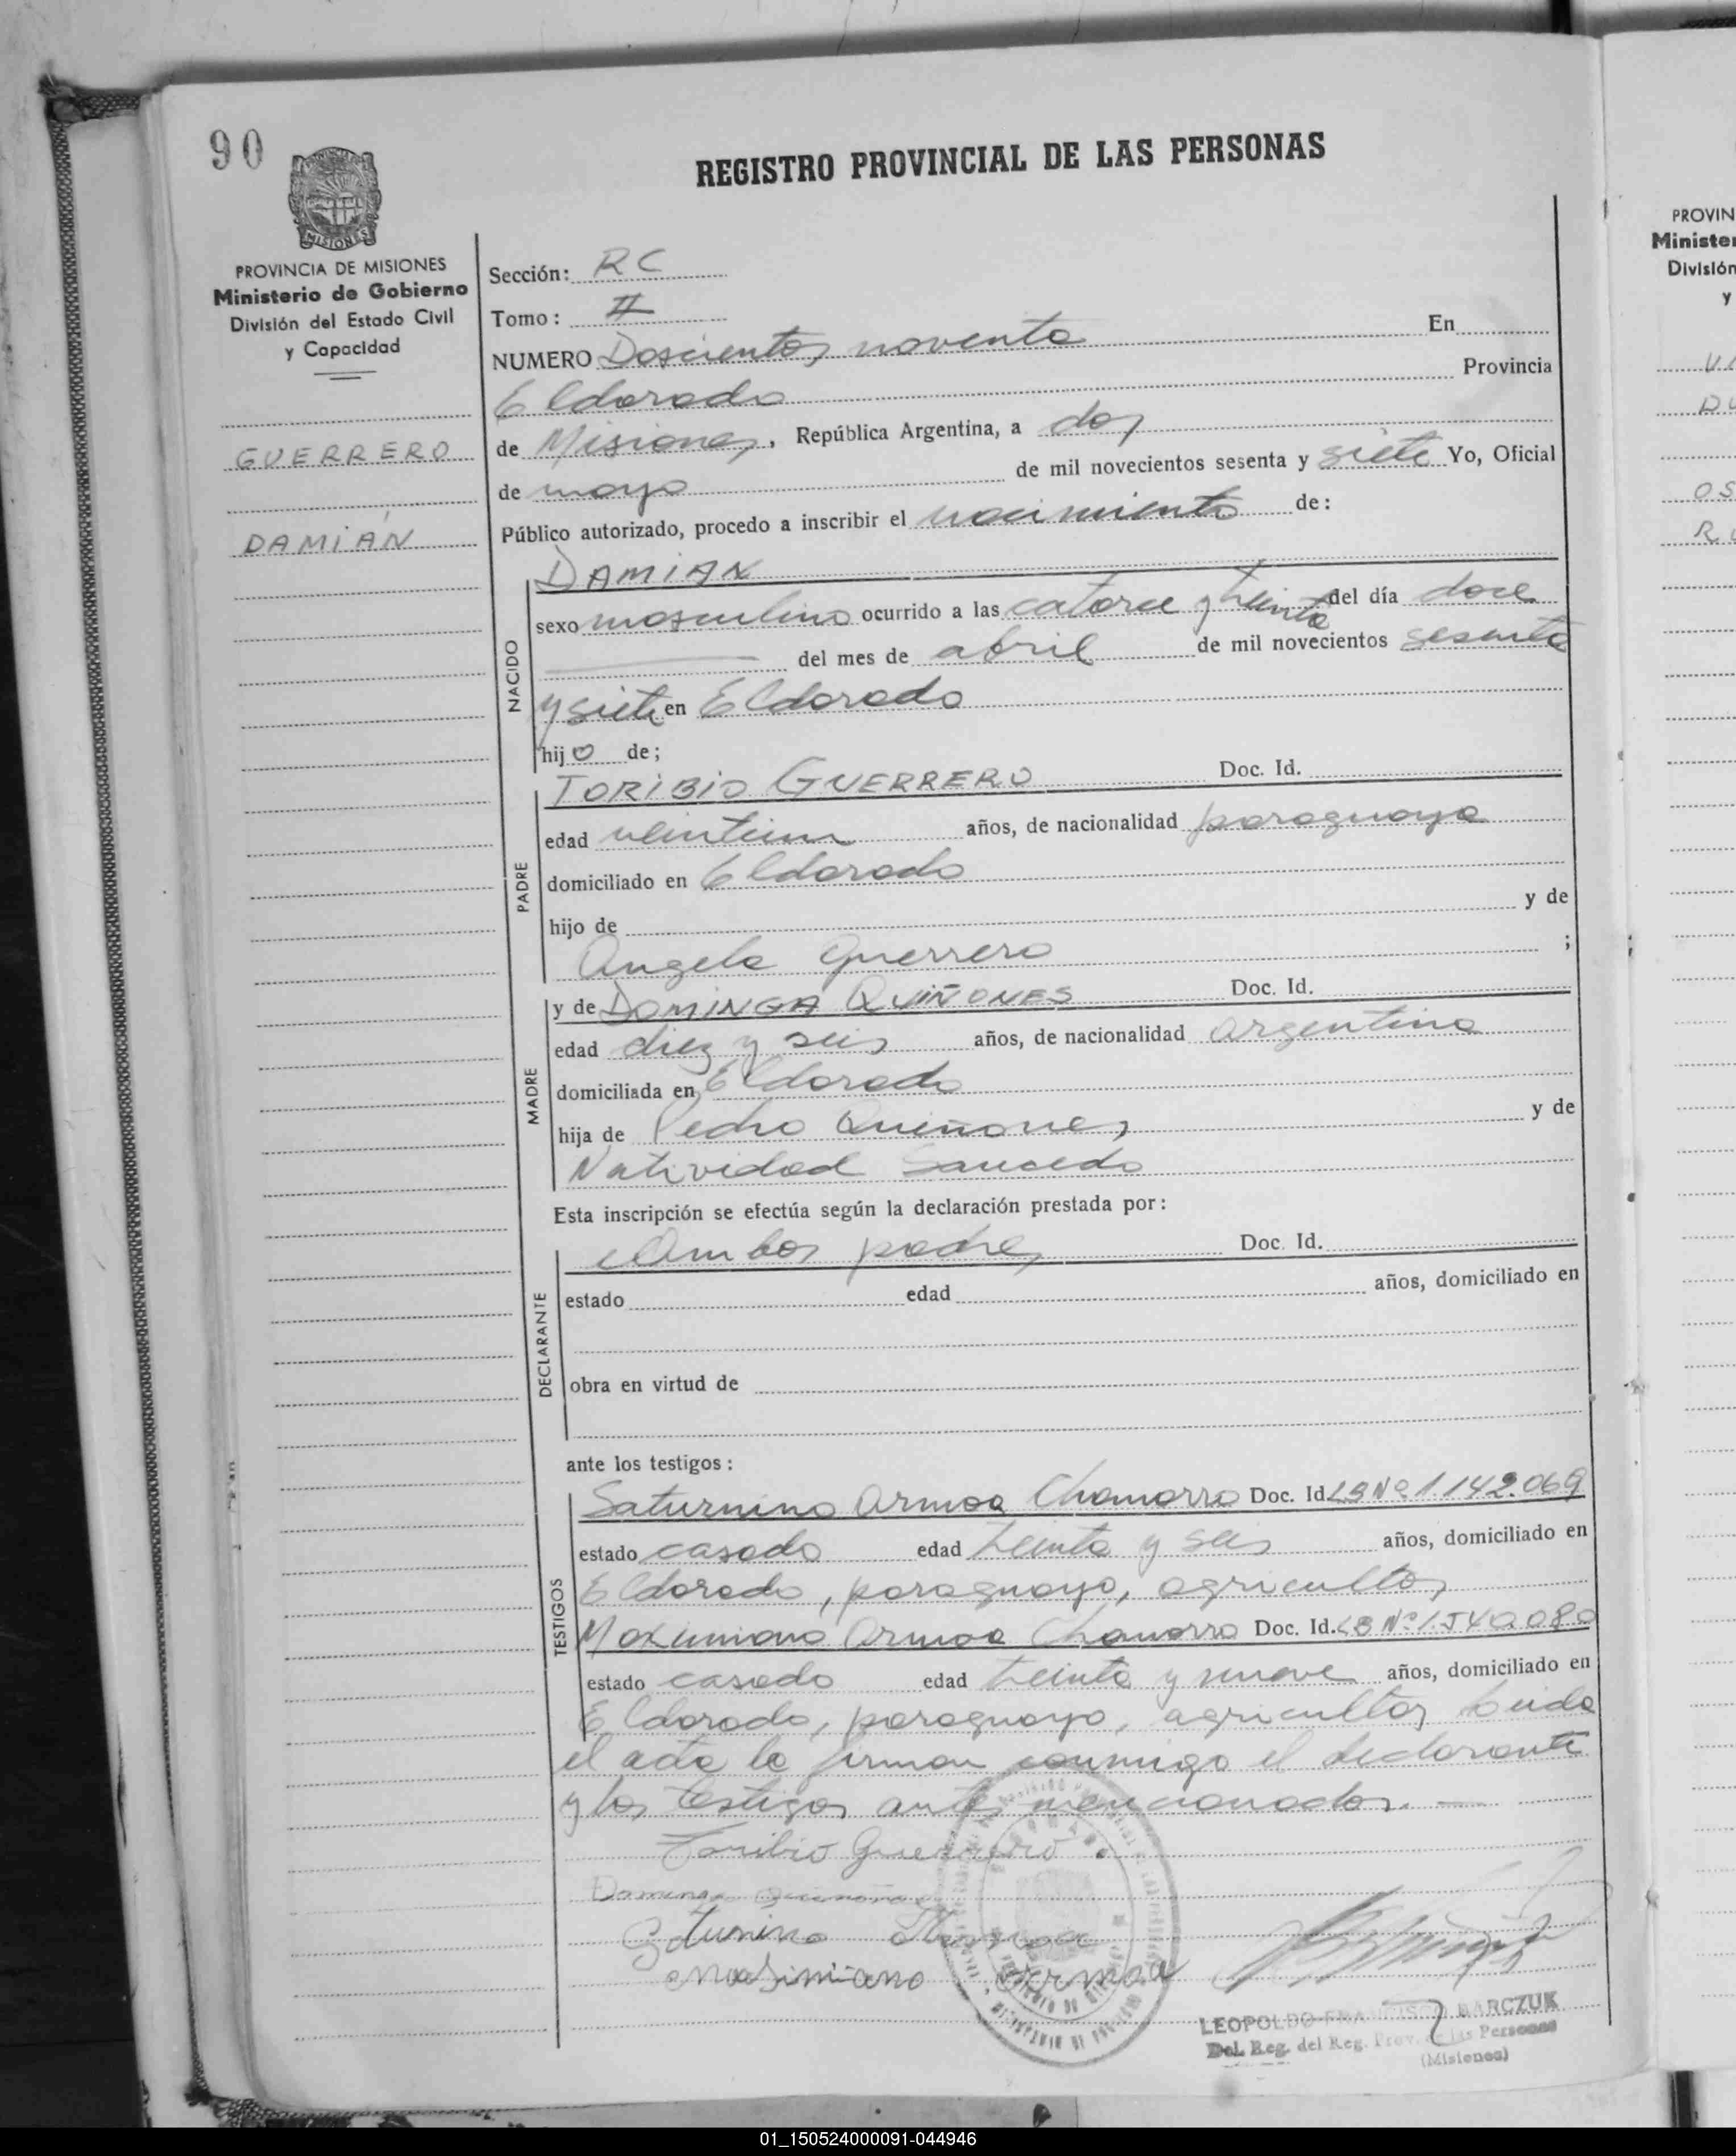 90
REGISTRO PROVINCIAL DE LAS PERSONAS
MISIONES
PROVINCIA DE MISIONES
Ministerio de Gobierno
División del Estado Civil
y Capacidad
GUERRERO
DAMIÁN
Sección: RC
Tomo: II
NUMERO Doscientos noventa En
Eldorado Provincia
de Misiones, República Argentina, a dos
de mayo de mil novecientos sesenta y siete Yo, Oficial
Público autorizado, procedo a inscribir el nacimiento de:
DAMIAN
NACIDO
sexo masculino ocurrido a las catorce y treinta del día doce
del mes de abril de mil novecientos sesenta
y siete en Eldorado
hijo de;
PADRE
TORIBIO GUERRERO Doc. Id.
edad veintiun años, de nacionalidad paraguaya
domiciliado en Eldorado
hijo de y de
Angela Guerrero ;
MADRE
y de DOMINGA QUIÑONES Doc. Id.
edad diez y seis años, de nacionalidad argentina
domiciliada en Eldorado
hija de Pedro Quiñones y de
Natividad Saucedo
Esta inscripción se efectúa según la declaración prestada por:
DECLARANTE
Ambos padres Doc. Id.
estado edad años, domiciliado en
obra en virtud de
ante los testigos:
TESTIGOS
Saturnino Armoa Chamorro Doc. Id. Nº 1.142.069
estado casado edad treinta y seis años, domiciliado en
Eldorado, paraguayo, agricultor,
Maximiano Armoa Chamorro Doc. Id. Nº
estado casado edad treinta y nueve años, domiciliado en
Eldorado, paraguayo, agricultor, Leida
el acta la firman conmigo el declarante
y los testigos antes mencionados.
Toribio Guerrero
Dominga
Saturnino Armoa
Masimiano Armoa
LEOPOLDO FRANCISCO BARCZUK
Del. Reg. del Reg. Prov. de las Personas
(Misiones)
PROVIN
Minister
División
y
01_150524000091-044946